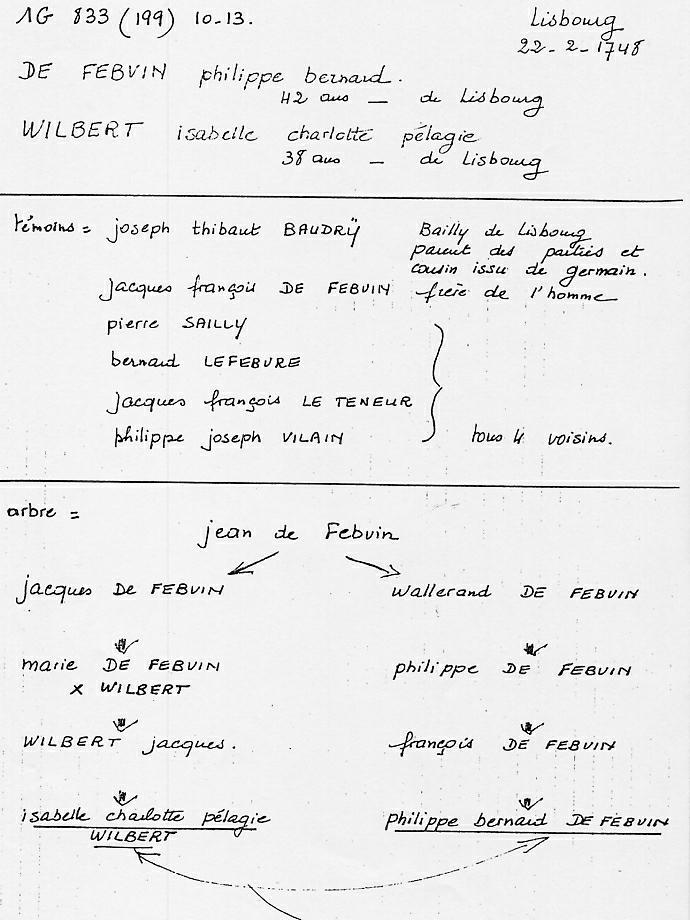 1G 833 (199) 10-13. Lisbourg
22-2-1748
DE FEBVIN philippe bernard.
42 ans — de Lisbourg
WILBERT isabelle charlotte pélagie
38 ans — de Lisbourg
témoins = joseph thibaut BAUDRŸ Bailly de Lisbourg
parent des parties et
cousin issu de germain.
jacques françois DE FEBVIN frère de l'homme
pierre SAILLY
bernard LEFEBURE
jacques françois LE TENEUR
philippe joseph VILAIN tous 4 voisins.
arbre =
jean de Febvin
jacques De FEBVIN Wallerand DE FEBVIN
marie DE FEBVIN philippe DE FEBVIN
x WILBERT
WILBERT jacques. françois DE FEBVIN
isabelle charlotte pélagie philippe bernard DE FEBVIN
WILBERT